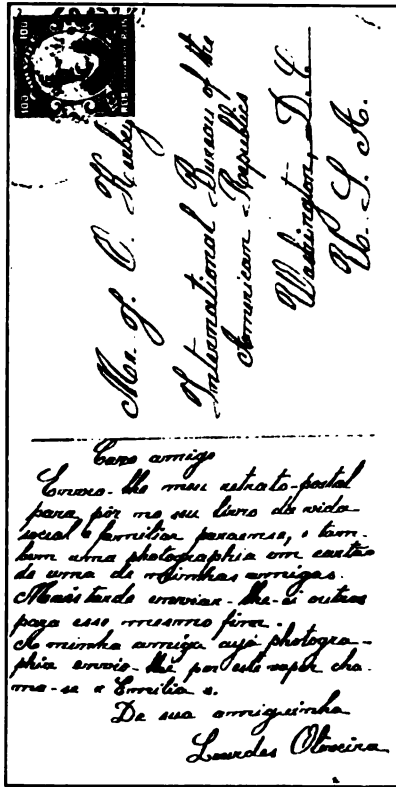 100
100
REIS
Mr. J. C. Kirby
International Bureau of the
American Republics
Washington, D. C.
U. S. A.
Caro amigo
Envio-lhe meu retrato-postal
para pôr no seu livro da vida
social e familiar paraense, e tam-
bem uma photographia em cartão
de uma de minhas amigas.
Mais tarde enviar-lhe-ei outros
para esse mesmo fim.
A minha amiga cuja photogra-
phia envio-lhe por este vapor cha-
ma-se Emilia
De sua amiguinha
Lourdes Oliveira